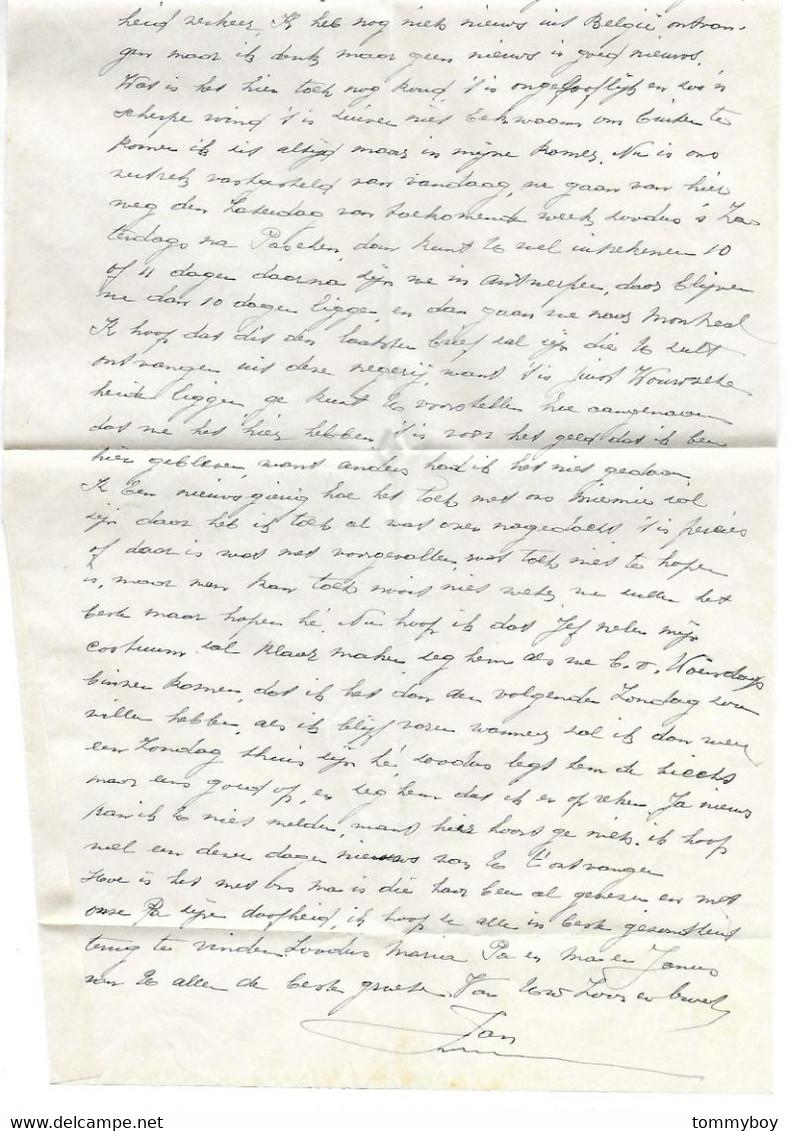 heid verkeer. Ik heb nog niets nieuws uit België ontvan-
gen maar ik denk maar geen nieuws is goed nieuws.
Wat is het hier toch nog koud 't is ongelooflijk en zoo'n
scherpe wind 't is zuiver niet bekwaam om buiten te
komen ik zit altijd maar in mijne kamer. Nu is ons
vertrek vastgesteld van vandaag, we gaan van hier
weg den Zaterdag van toekomende week, zoodus 's Za-
terdags na Paschen, dan kunt U wel inrekenen 10
of 11 dagen daarna zijn we in Antwerpen, daar blijven
we dan 10 dagen liggen, en dan gaan we naar Montreal
Ik hoop dat dit den laatsten brief zal zijn die U zult
ontvangen uit deze negerij, want 't is juist
heide liggen ge kunt U voorstellen hoe aangenaam
dat we het hier hebben 't is voor het geld dat ik ben
hier gebleven, want anders had ik het niet gedaan
Ik ben nieuwsgierig hoe het toch met ons Miemie zal
zijn daar heb ik toch al wat over nagedacht 't is precies
of daar is wat met voorgevallen, wat toch niet te hopen
is, maar men kan toch nooit niet weten we zullen het
beste maar hopen hé. Nu hoop ik dat Jef Nelen mijn
costuum zal klaar maken zeg hem als we b.v. Woensdags
binnen komen, dat ik het dan den volgenden Zondag zou
willen hebben, als ik blijf varen wanneer zal ik dan weer
een Zondag thuis zijn hé, zoodus legt hem de
maar eens goed op, en zeg hem dat ik er op reken. Ja nieuws
kan ik U niet melden, want hier hoort ge niets. ik hoop
wel een dezer dagen nieuws van U t'ontvangen
Hoe is het met ons ma is die haar been al genezen en met
onze Pa zijn doofheid, ik hoop U allen in beste gezondheid
terug te vinden. Zoodus Maria Pa en Ma en
van U allen de beste groeten. Van Uw Zoon en broer,
Jan
tommyboy